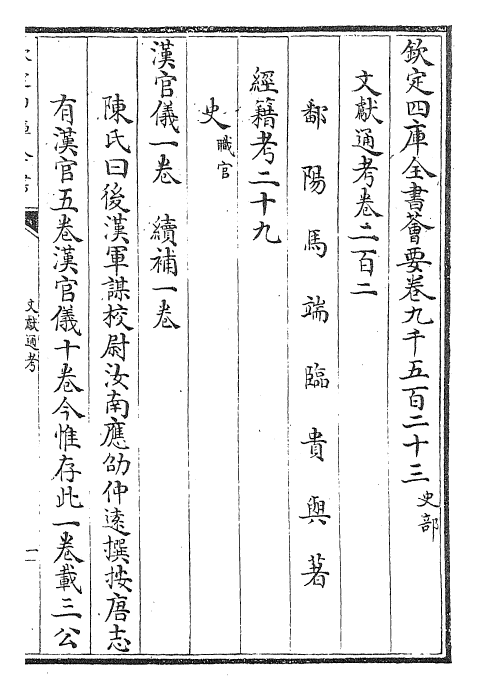 欽定四庫全書薈要卷九千五百二十三 史部
文獻通考卷二百二
鄱陽馬端臨貴與著
經籍考二十九
史 職官
漢官儀一卷 續補一卷
陳氏曰後漢軍謀校尉汝南應劭仲遠撰按唐志
有漢官五卷漢官儀十卷今惟存此一卷載三公
文獻通考
一